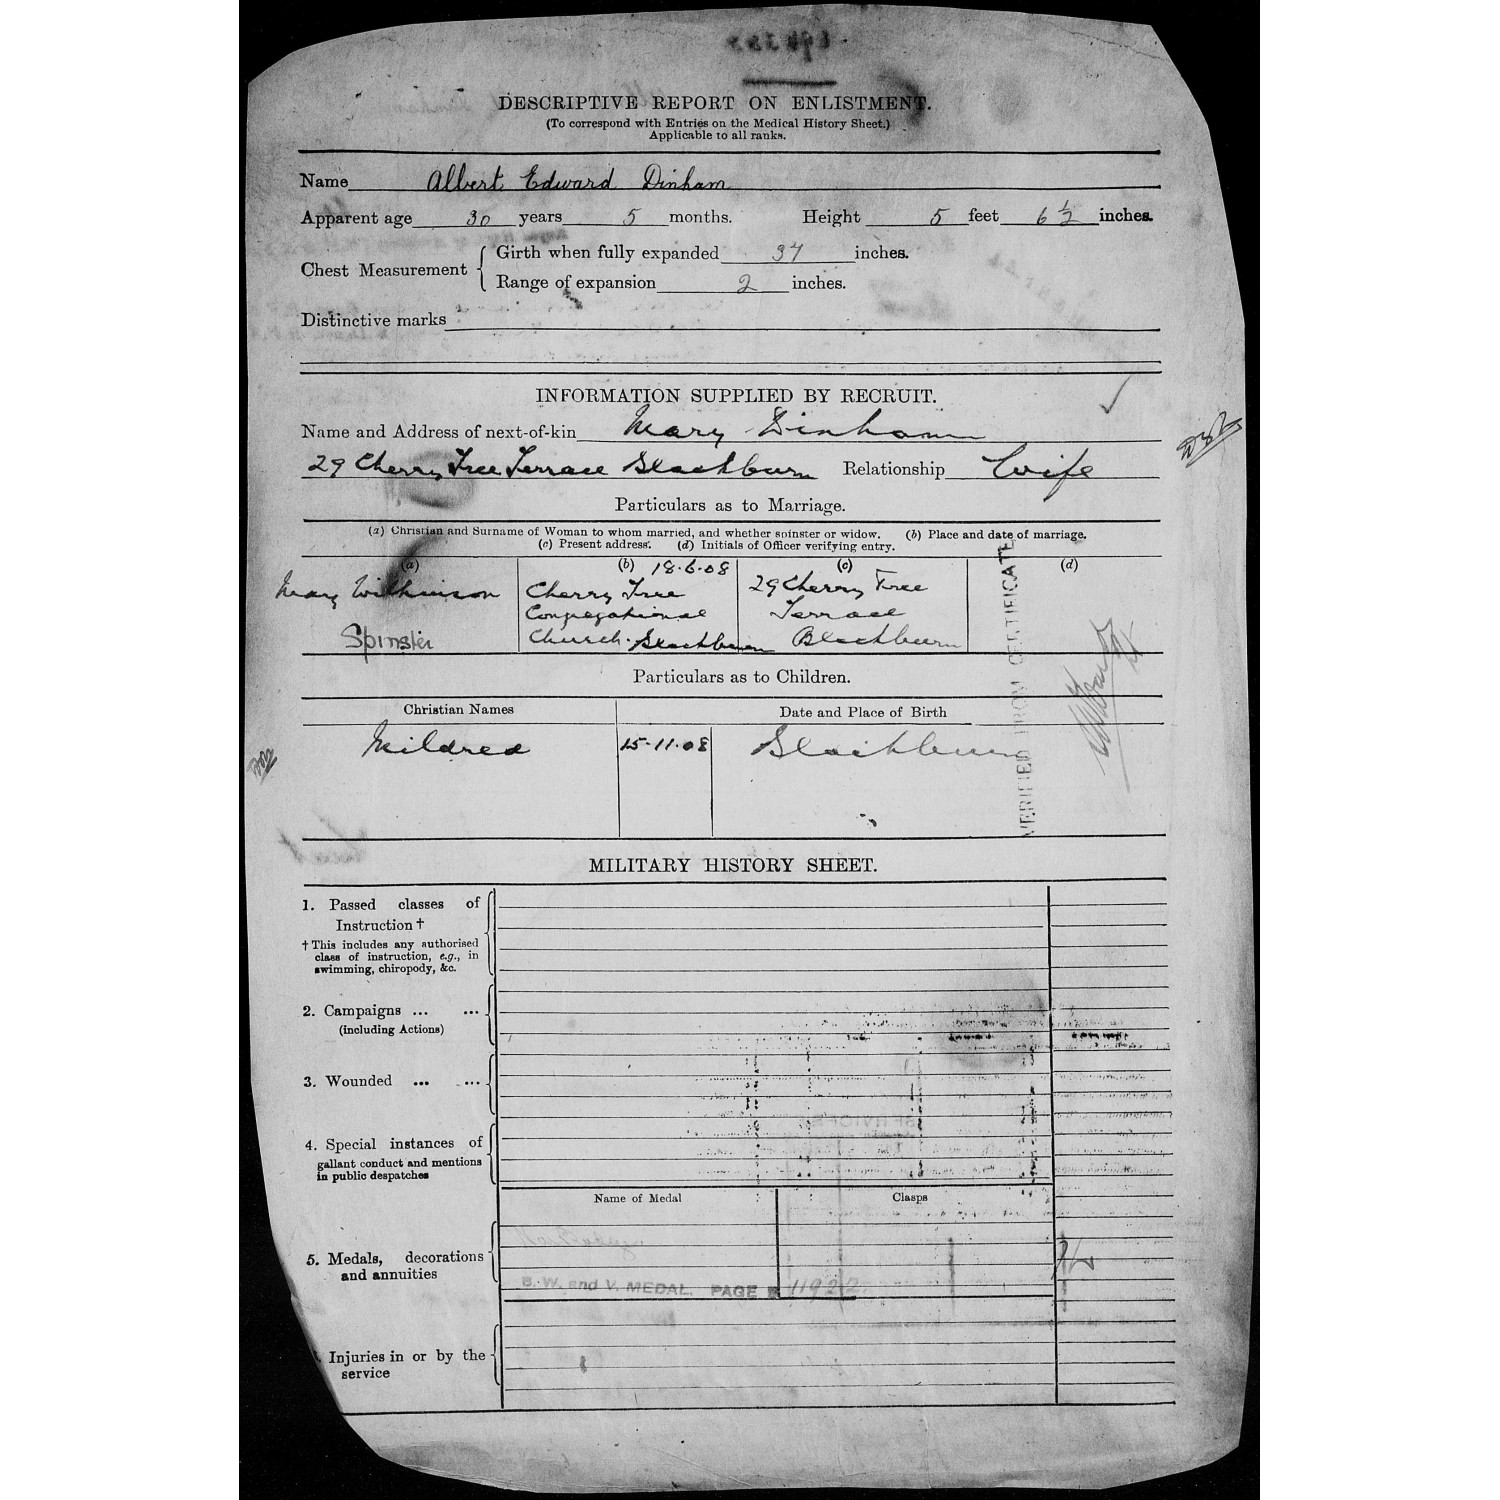 DESCRIPTIVE REPORT ON ENLISTMENT.
(To correspond with Entries on the Medical History Sheet.)
Applicable to all ranks.
Name Albert Edward Dinham
Apparent age 30 years 5 months. Height 5 feet 6 ½ inches.
Chest Measurement { Girth when fully expanded 37 inches.
Range of expansion 2 inches.
Distinctive marks
INFORMATION SUPPLIED BY RECRUIT.
Name and Address of next-of-kin Mary Dinham
29 Cherry Tree Terrace Blackburn Relationship Wife
Particulars as to Marriage.
(a) Christian and Surname of Woman to whom married, and whether spinster or widow. (b) Place and date of marriage.
(c) Present address. (d) Initials of Officer verifying entry.
(a) (b) 18.6.08 (c) (d)
Mary Wilkinson Cherry Tree 29 Cherry Tree
Congregational Terrace
Spinster Church. Blackburn Blackburn
VERIFIED FROM CERTIFICATE
Particulars as to Children.
Christian Names Date and Place of Birth
Mildred 15.11.08 Blackburn
MILITARY HISTORY SHEET.
1. Passed classes of
Instruction †
† This includes any authorised
class of instruction, e.g., in
swimming, chiropody, &c.
2. Campaigns ... ...
(including Actions)
3. Wounded ... ...
4. Special instances of
gallant conduct and mentions
in public despatches
Name of Medal Clasps
5. Medals, decorations
and annuities
B. W. and V. MEDAL. PAGE 11922
Injuries in or by the
service